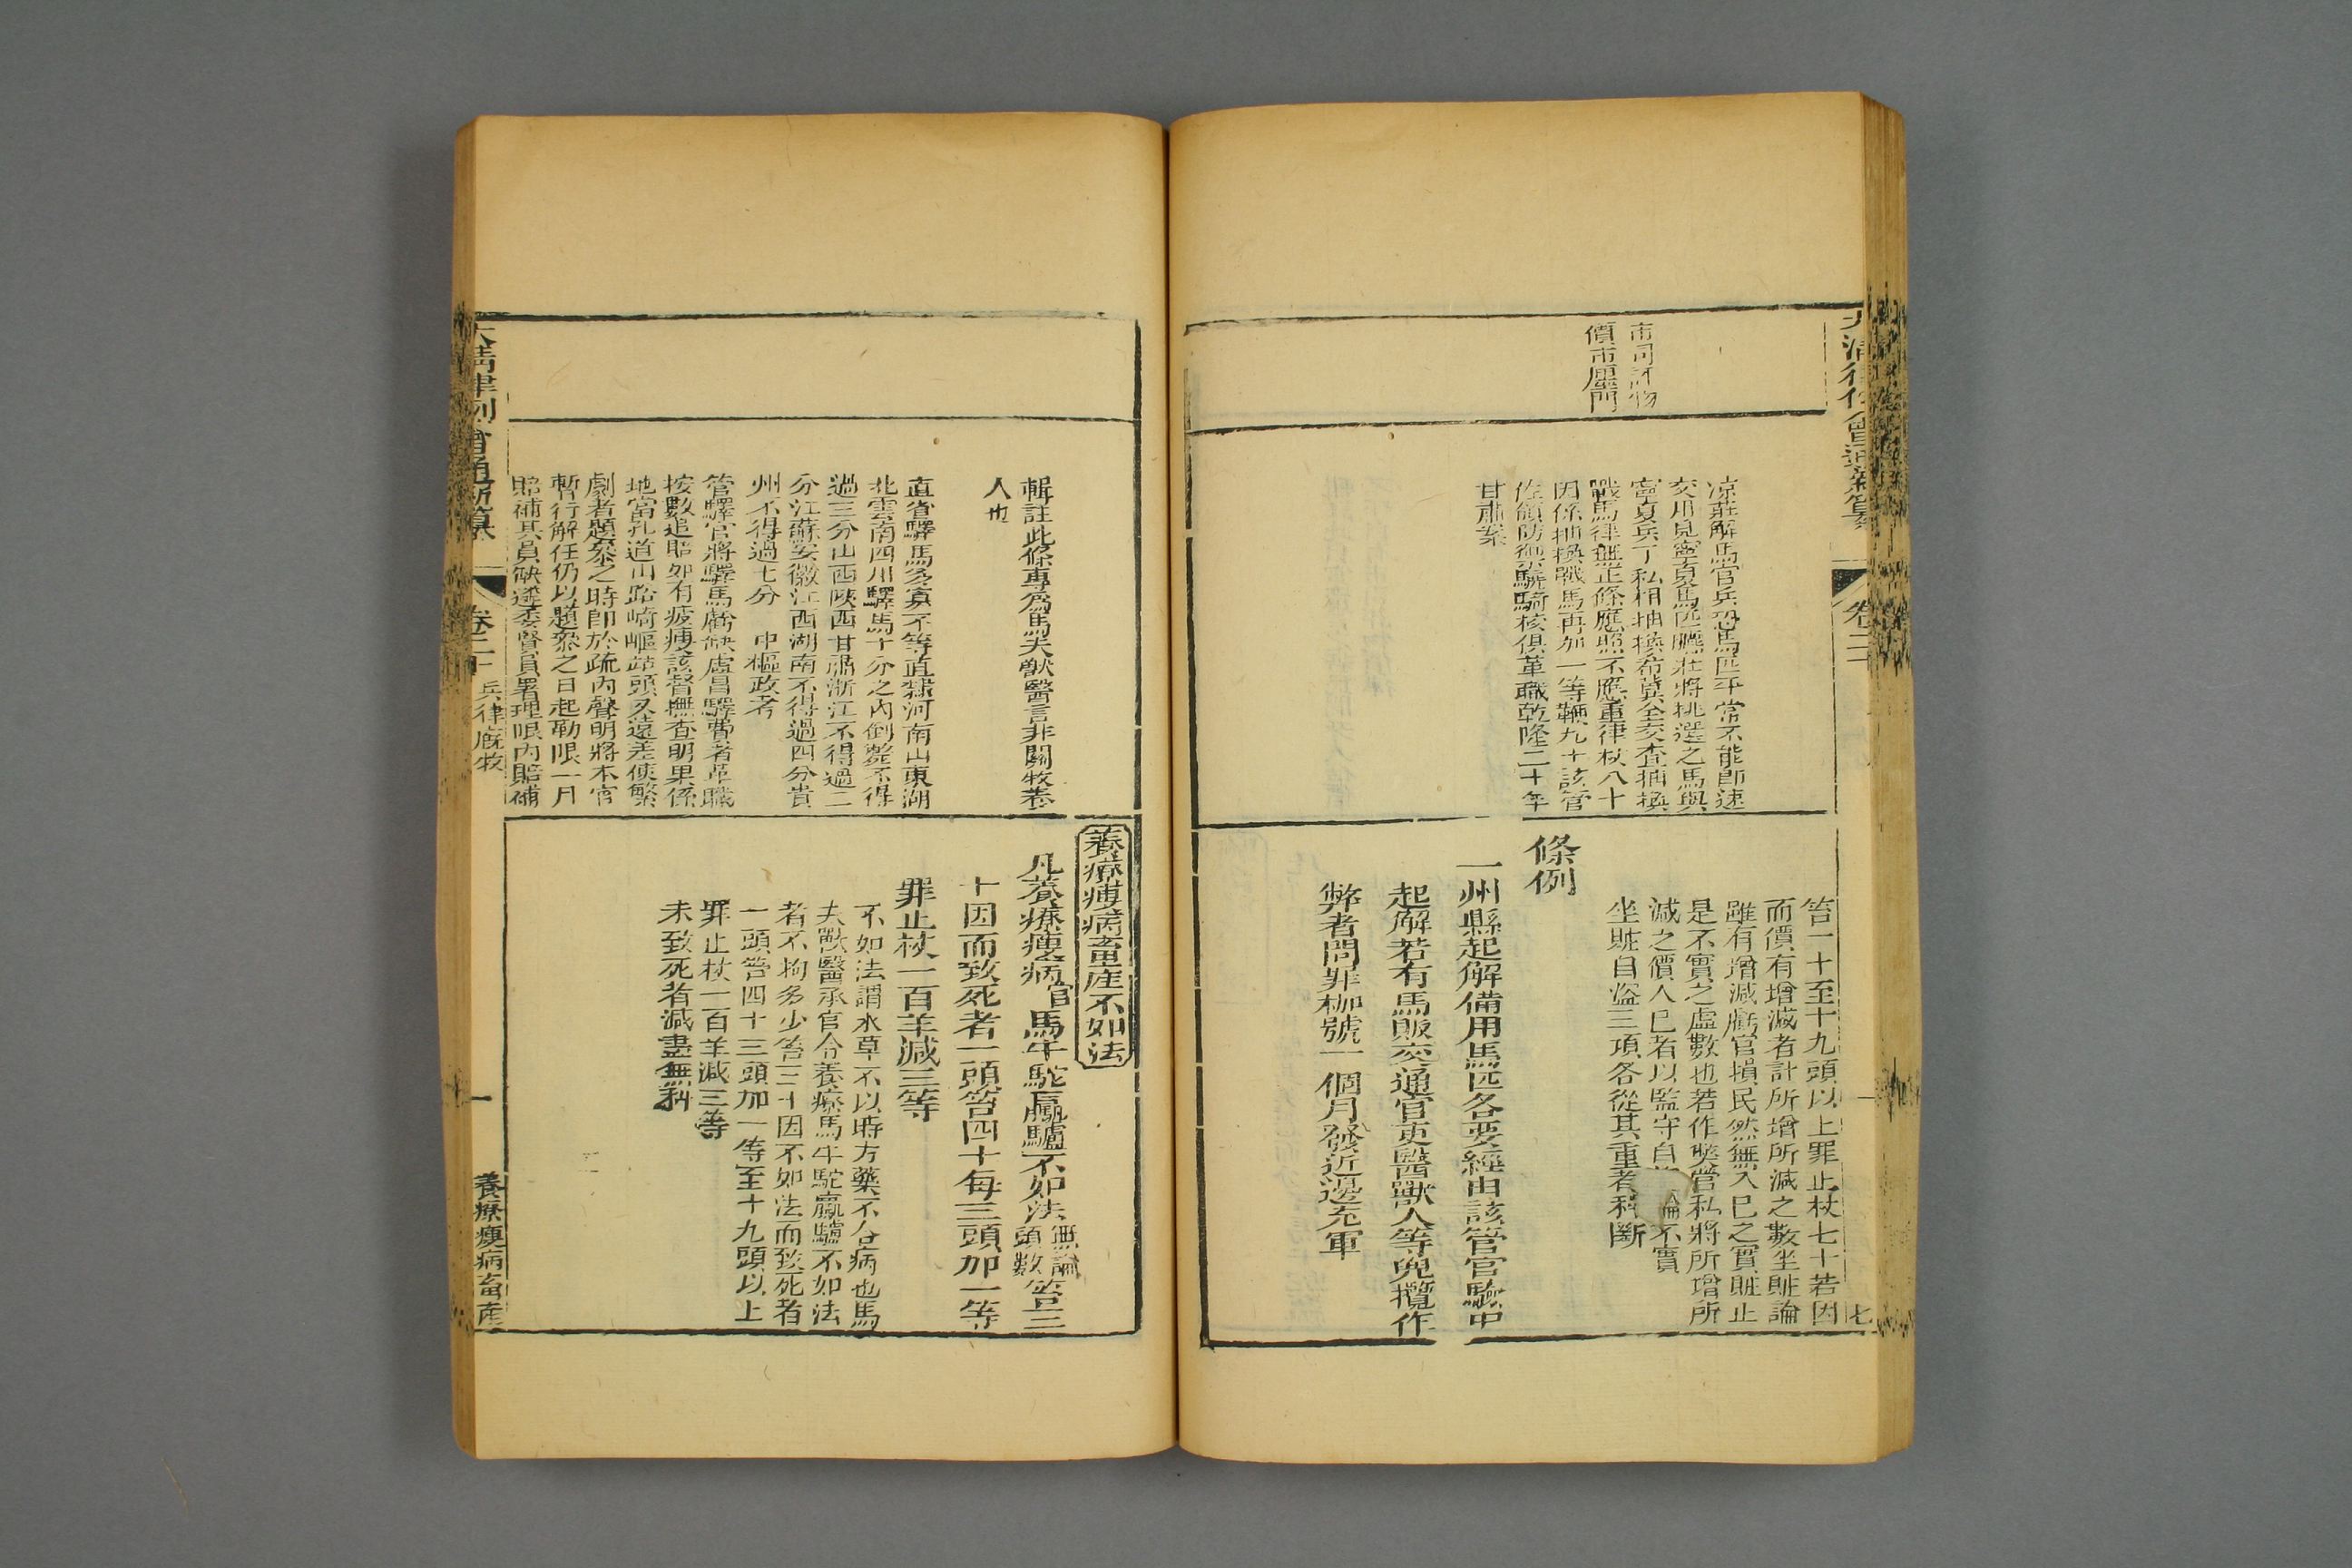 大清律例會通新纂
卷二十
七
市司評物
價市廛門
凉莊解馬官兵恐馬匹平常不能即速
交川見寧夏馬匹臕壯將挑選之馬與
寧夏兵丁私相抽換希冀全交查抽換
戰馬律無正條應照不應重律杖八十
因係抽換戰馬再加一等鞭九十該管
佐領防禦驍騎校俱革職乾隆二十年
甘肅案
笞一十至十九頭以上罪止杖七十若因
而價有增減者計所增所減之數坐贓論
雖有增減虧官損民然無入己之實贓止
是不實之虛數也若作獘營私將所增所
減之價入己者以監守自論不實
坐贓自盜三項各從其重者科斷
條例
一州縣起解備用馬匹各要經由該管官驗中
起解若有馬販交通官吏醫獸人等兜攬作
弊者問罪枷號一個月發近邊充軍
輯註此條專爲馬夫獸醫言非關牧養
人也
直省驛馬多寡不等直隸河南山東湖
北雲南四川驛馬十分之內倒斃不得
過三分山西陝西甘肅浙江不得過二
分江蘇安徽江西湖南不得過四分貴
州不得過七分 中樞政考
管驛官將驛馬虧缺虛冒驛費者革職
按數追賠如有疲瘦該督撫查明果係
地當孔道山路崎嶇站頭又遠差使繁
劇者題叅之時即於疏內聲明將本官
暫行解任仍以題叅之日起勒限一月
賠補其員缺遴委賢員署理限內賠補
養療瘦病畜産不如法
凡養療瘦病官馬牛駝驘驢不如法無論頭數笞三
十因而致死者一頭笞四十每三頭加一等
罪止杖一百羊減三等
不如法謂水草不以時方藥不合病也馬
夫獸醫承官令養療馬牛駝驘驢不如法
者不拘多少笞三十因不如法而致死者
一頭笞四十三頭加一等至十九頭以上
罪止杖一百羊減三等
未致死者減盡無科
大清律例會通新纂
卷二十
兵律廐牧
一
養療瘦病畜産